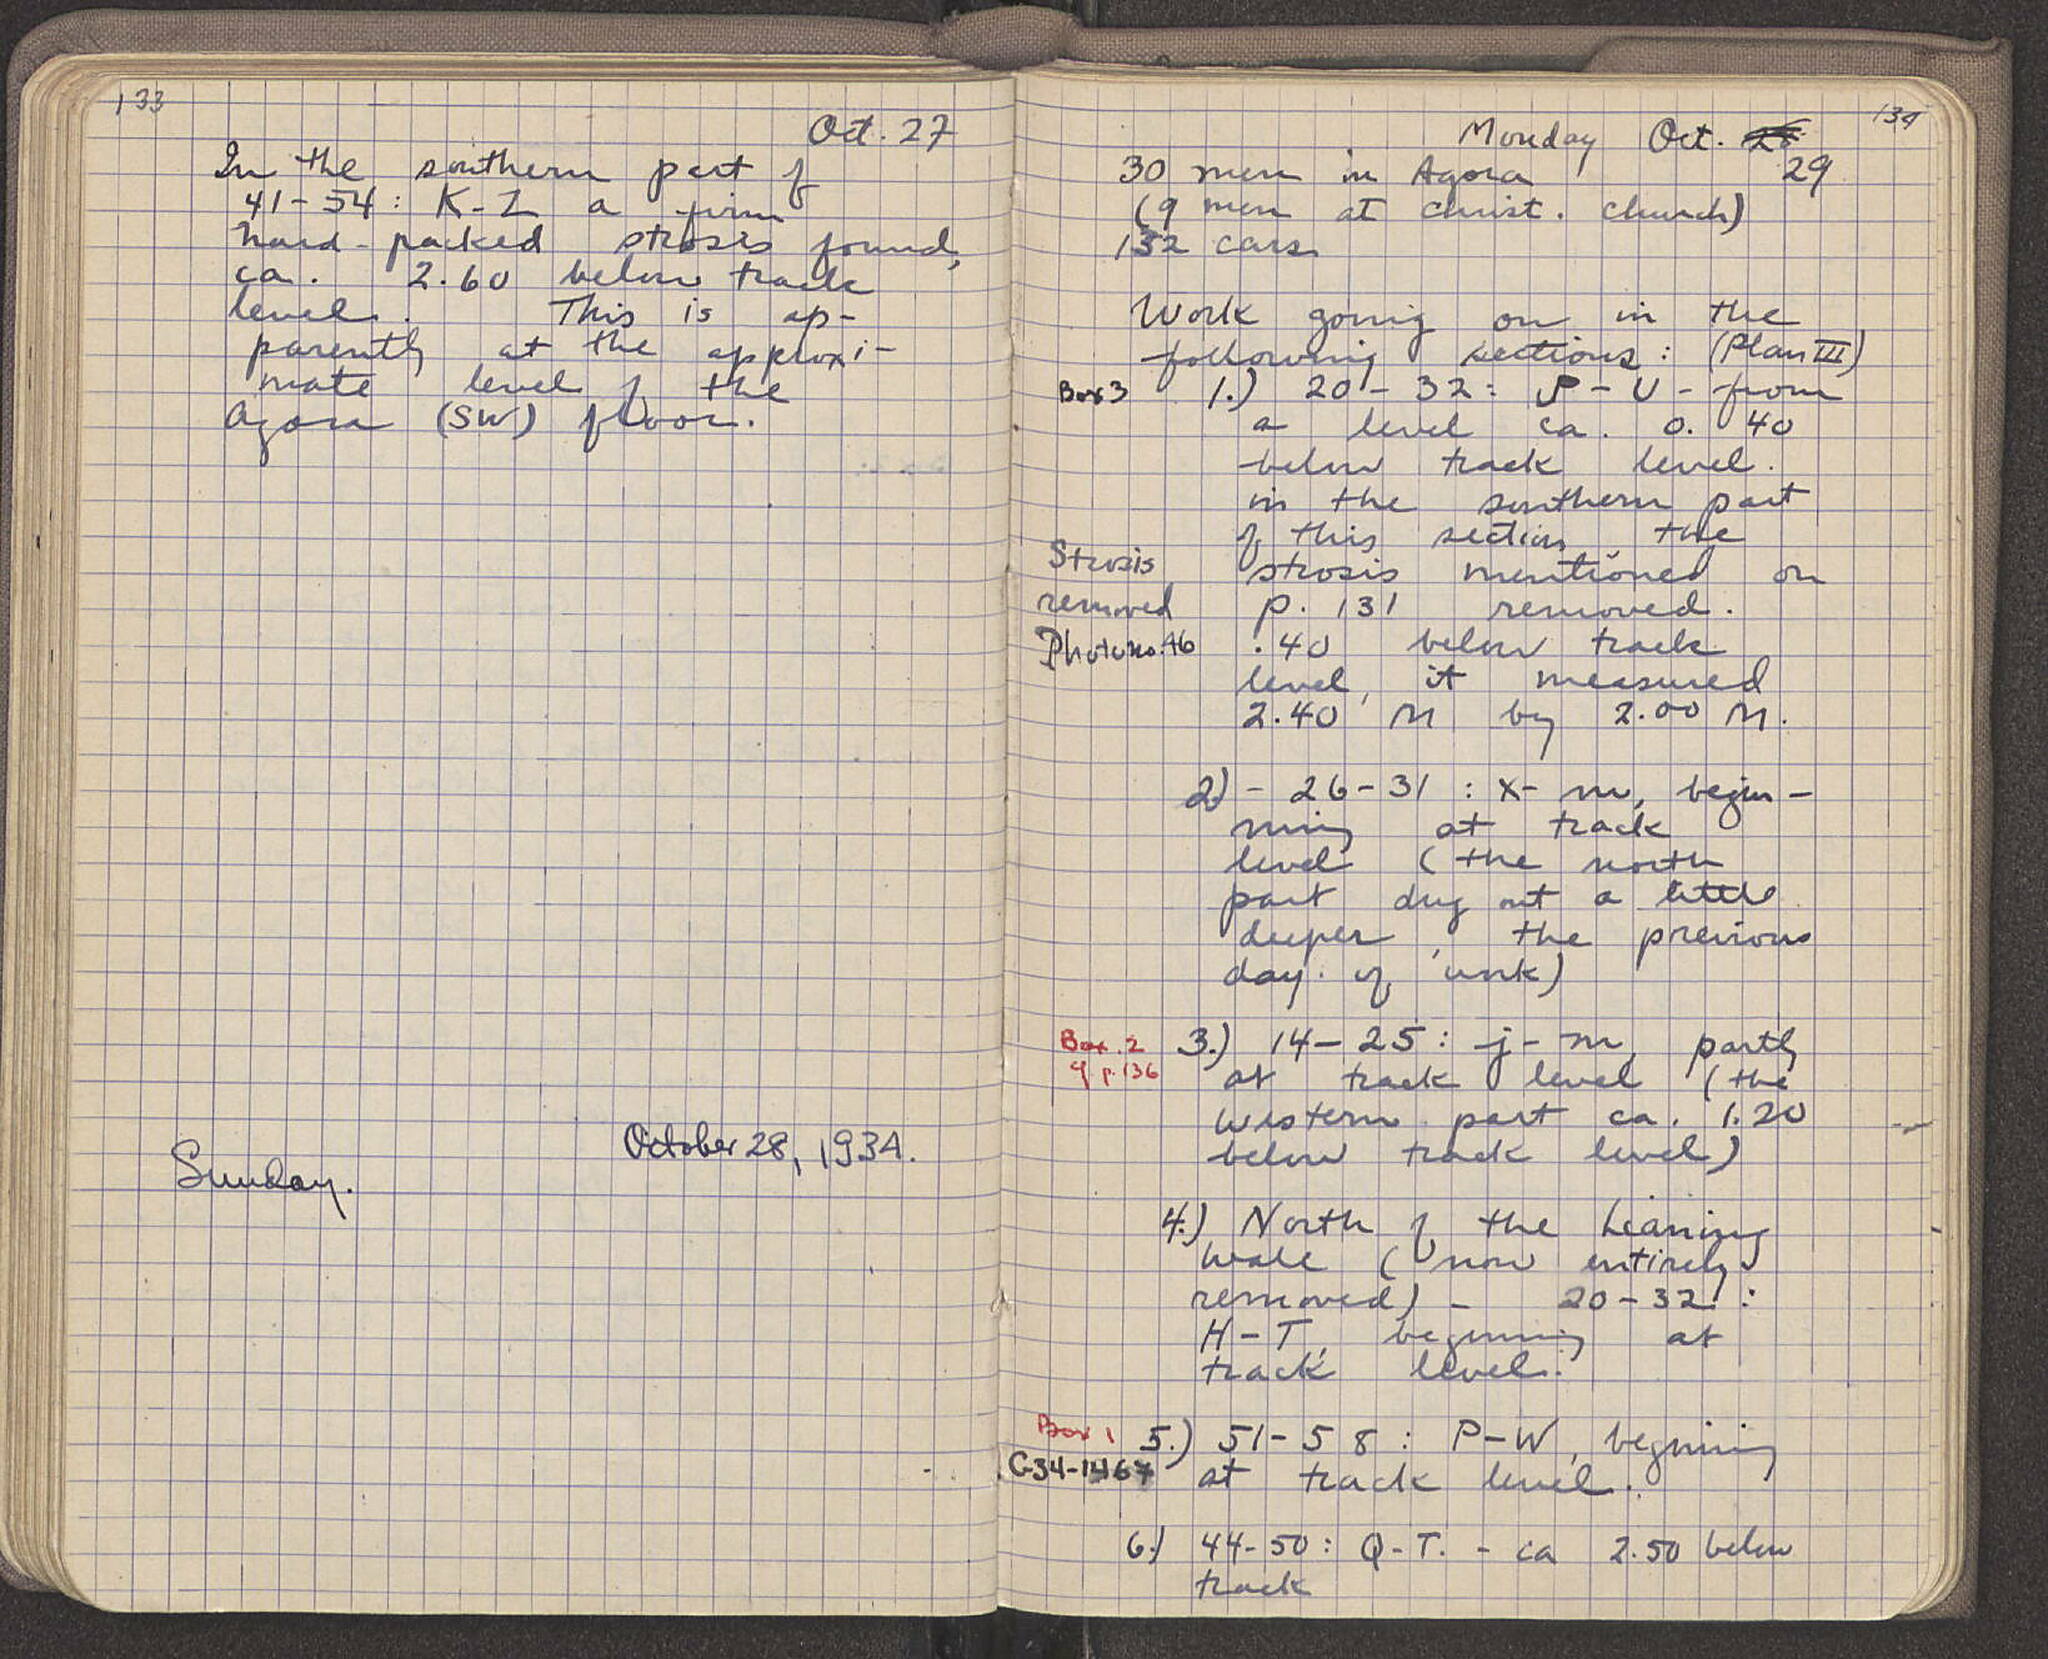 133
Oct. 27
In the southern part of
41-54: K-Z a firm
hard-packed strosis found,
ca. 2.60 below track
level. This is ap-
parently at the approxi-
mate level of the
Agora (SW) floor.
October 28, 1934.
Sunday.
134
Monday Oct.
29
30 men in Agora
(9 men at Christ. church)
132 cars
Work going on in the
following sections: (Plan III)
Box 3 1.) 20-32: P-U - from
a level ca. 0.40
below track level.
in the southern part
of this section the
Strosis strosis mentioned on
removed p. 131 removed.
Photo no. 46 .40 below track
level, it measured
2.40 M by 2.00 M.
2) - 26-31 : x-m, begin-
ning at track
level (the north
part dug out a little
deeper, the previous
day of work)
Box. 2 3.) 14-25: j-m, partly
cf. p. 136 at track level (the
western part ca. 1.20
below track level)
4.) North of the Leaning
wall (now entirely
removed) - 20-32:
H-T, beginning at
track level.
Box 1 5.) 51-58: P-W, beginning
C-34-1467 at track level.
6.) 44-50: Q-T. - ca 2.50 below
track